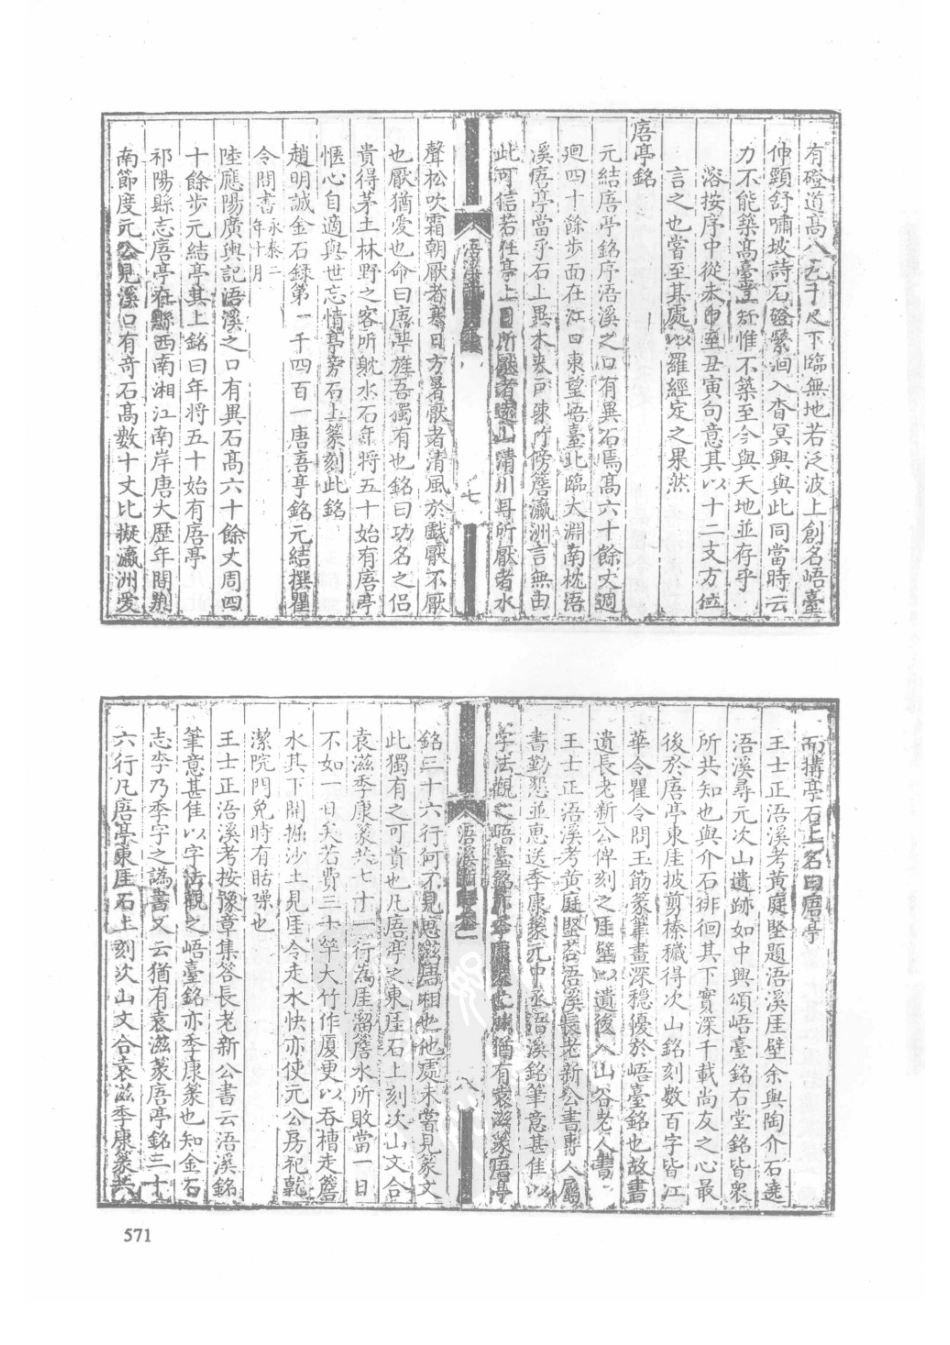 有磴道高八九十尺下臨無地若泛波上創名峿臺
仲顗舒嘯坡詩石磴縈洄入杳冥興與此同當時云
力不能築高臺莹惟不築至今與天地並存乎
溶按序中從未申至丑寅句意其以十二支方位
言之也嘗至其處以羅經定之果然
㾿亭銘
元結㾿亭銘序浯溪之口有異石焉高六十餘丈週
迴四十餘步面在江口東望峿臺北臨大淵南枕浯
溪㾿亭當乎石上異木夾戶疎竹傍簷瀛洲言無由
此可信若在亭上目所厭者遠山清川耳所厭者水
七
聲松吹霜朝厭者寒日方暑厭者清風於戲厭不厭
也厭猶愛也命曰㾿亭旌吾獨有也銘曰功名之侣
貴得茅土林野之客所躭水石年將五十始有㾿亭
惬心自適與世忘情亭旁石上篆刻此銘
趙明誠金石録第一千四百一唐㾿亭銘元結撰瞿
令問書永泰二年十一月
陸應陽廣輿記浯溪之口有異石高六十餘丈周四
十餘步元結亭其上銘曰年将五十始有㾿亭
祁陽縣志㾿亭在縣西南湘江南岸唐大歷年間荆
南節度元公見溪口有奇石高數十丈比擬瀛洲爰
而搆亭石上名曰㾿亭
王士正浯溪考黃庭堅題浯溪厓壁余與陶介石遶
浯溪尋元次山遺跡如中興頌峿臺銘右堂銘皆衆
所共知也與介石徘徊其下實深千載尚友之心最
後於㾿亭東厓披剪榛穢得次山銘刻數百字皆江
華令瞿令問玉筯篆筆畫深穩優於峿臺銘也故書
遺長老新公俾刻之厓壁以遺後人山谷老人書
王士正浯溪考黃庭堅荅浯溪長老新公書專人辱
書勤懇並惠送季康篆元中丞浯溪銘筆意甚佳以
字法觀之峿臺銘亦季康篆也猶有袁滋篆㾿亭
八
銘三十六行何不見惠滋唐相也他處未嘗見篆文
此獨有之可貴也凡㾿亭之東厓石上刻次山文合
袁滋季康篆共七十一行為厓溜簷水所敗當一日
不如一日矣若費三十竿大竹作厦更以吞槽走簷
水其下開掘沙土見厓令走水快亦使元公房祀乾
潔院門免時有聒噪也
王士正浯溪考按豫章集荅長老新公書云浯溪銘
筆意甚佳以字法觀之峿臺銘亦季康篆也知金石
志李乃季字之譌書又云猶有袁滋篆㾿亭銘三十
六行凡㾿亭東厓石上刻次山文合袁滋季康篆共
571